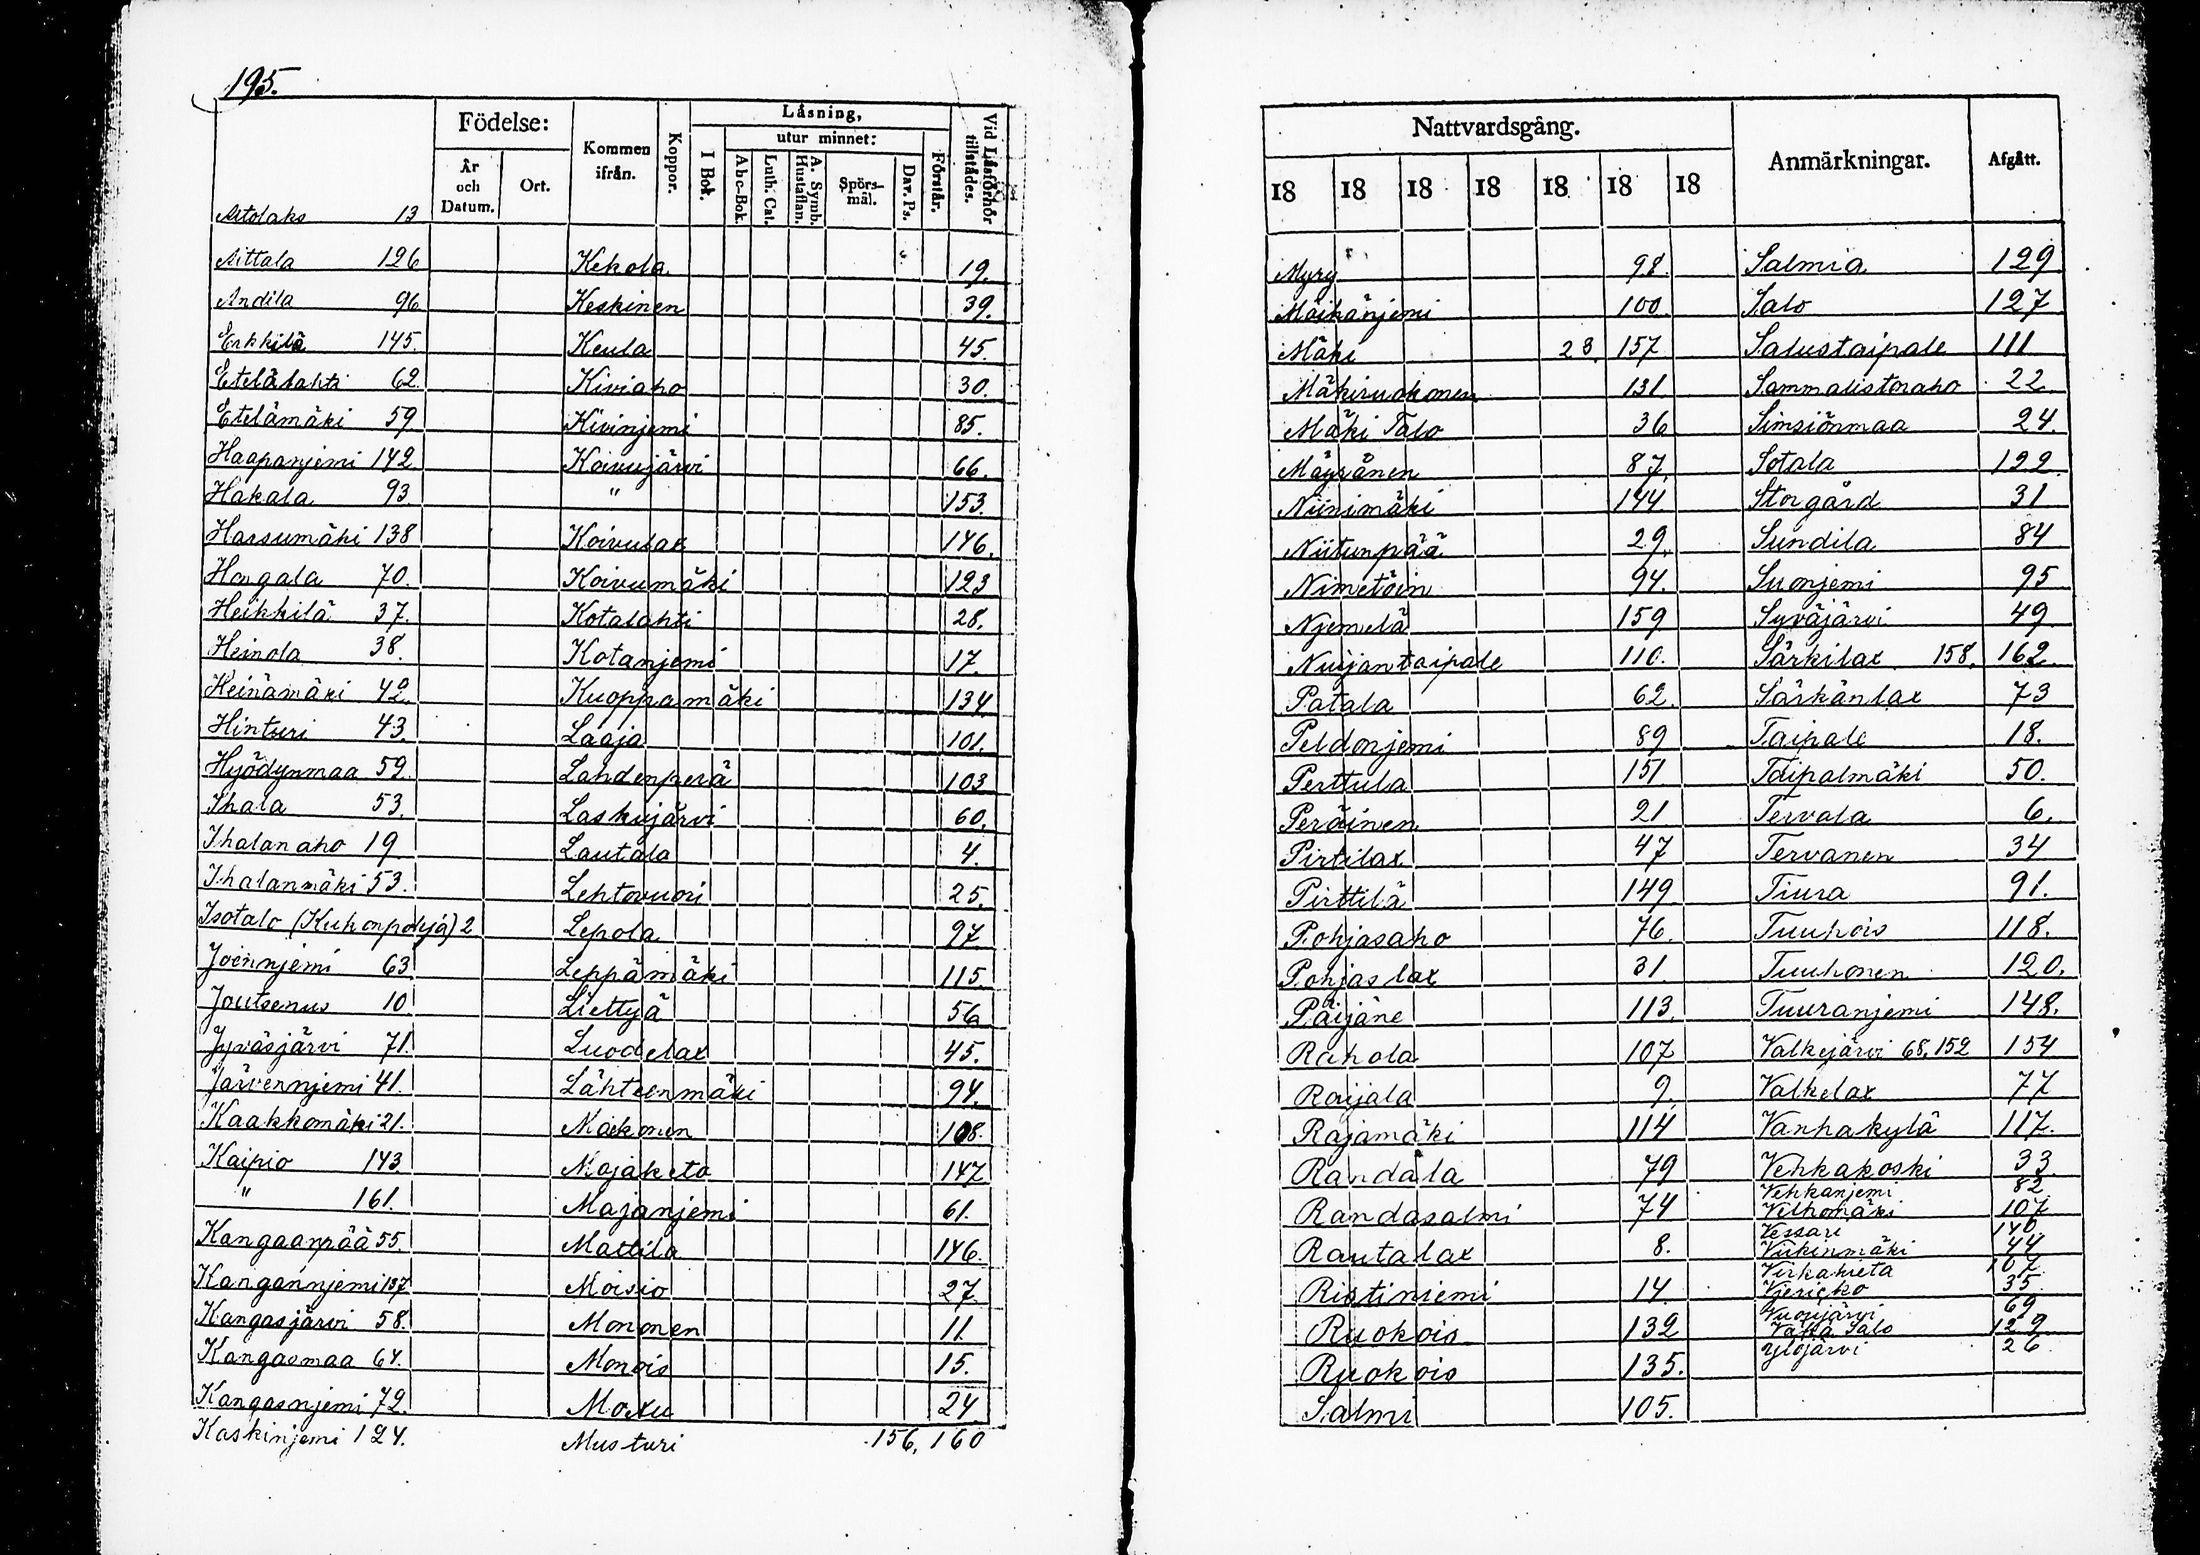 195.
Födelse:
År och Datum.
Ort.
Kommen ifrån.
Koppor.
Läsning,
I Bok.
utur minnet:
Abc-Bok.
Luth. Cat.
A. Symb. Hustaflan.
Spörs-mål.
Dav. Ps.
Förstår.
Vid Läsförhör tillstädes.
Aitolaks 13
Aittala 126
Andila 96
Erkkilä 145.
Etelälahti 62.
Etelämäki 59
Haapanjemi 142
Hakala 93.
Harsumäki 138
Hongala 70.
Heikkilä 37.
Heinola 38.
Heinämäki 42.
Hinturi 43.
Hyödynmaa 59.
Ihala 53.
Ihalanaho 19
Ihalanmäki 53.
Isotalo (Kukonpohjá) 2
Joennjemi 63
Joutsenus 10.
Jyväsjärvi 71.
Järvennjemi 41.
Kaakkomäki 21.
Kaipio 143.
" 161.
Kangaanpää 55.
Kangannjemi 137
Kangasjärvi 58.
Kangasmaa 64.
Kangasnjemi 72.
Kaskinjemi 124.
Kekola 19.
Keskinen 39.
Keula 45.
Kiviaho 30.
Kivinjemi 85.
Koivujärvi 66.
" 153.
Koivulax 146.
Koivumäki 123
Kotalahti 28.
Kotanjemi 17.
Kuoppamäki 134
Laaja 101.
Lahdenperä 103
Laskujärvi 60.
Lautala 4.
Lehtovuori 25.
Lepola 97
Leppämäki 115.
Liettyä 56
Luodelax 45.
Lähteenmäki 94.
Makonen 108.
Majaketo 147
Majanjemi 61.
Mattila 146.
Moisio 27.
Mononen 11.
Monois 15.
Moxu 24
Musturi 156, 160
Nattvardsgång.
18 18 18 18 18 18 18
Anmärkningar.
Afgått.
Myry 98.
Mäihänjemi 100
Mäki 28. 157
Mäkiruokonen 131.
Mäki Talo 36
Mäyränen 87.
Niinimäki 144
Niitunpää 29.
Nimetöin 94.
Njemelä 159
Nuijantaipale 110.
Patala 62.
Peldonjemi 89
Perttula 151
Peräinen 21.
Pirtilax 47
Pirttilä 149.
Pohjasaho 76.
Pohjaslax 31.
Päijäne 113.
Rahola 107
Raijala 9.
Rajamäki 114
Randala 79
Randasalmi 74
Rautalax 8.
Ristiniemi 14.
Ruokois 132
Ruokois 135.
Salmi 105.
Salmia 129
Salo 127
Salustaipale 111
Sammalistonaho 22
Simsiönmaa 24.
Sotala 122
Storgård 31
Sundila 84
Suonjemi 95
Syväjärvi 49
Särkilax 158, 162
Särkänlax 73
Taipale 18.
Taipalmäki 50.
Tervala 6.
Tervanen 34
Tiura 91.
Tuuhois 118.
Tuuhonen 120.
Tuuranjemi 148.
Valkejärvi 68, 152 154
Valkelax 77
Vanhakylä 117.
Vehkakoski 33
Vehkanjemi 82
Velhomäki 107
Vessari 140
Viikinmäki 44
Virkahieta 107
Vjericko 35
Vuorijärvi 69
Vähä Salo 129
Ylöjärvi 26